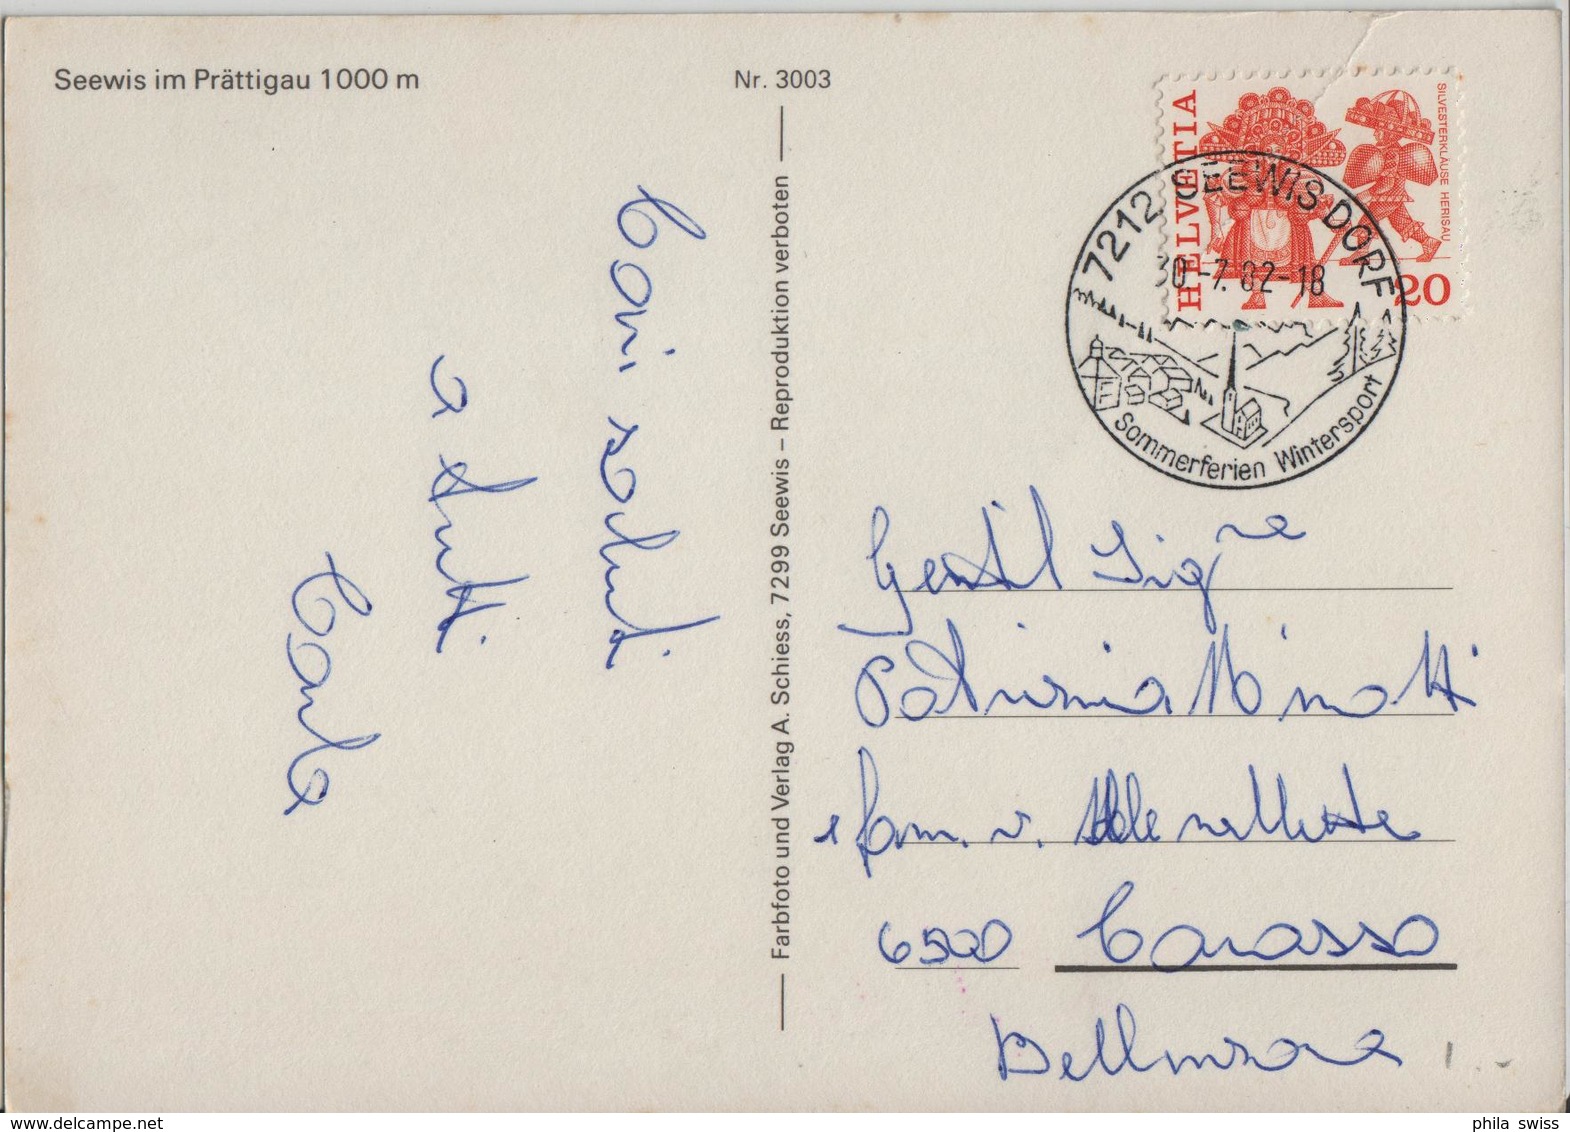 Seewis im Prättigau 1000 m
Nr. 3003
HELVETIA
SILVESTERKLÄUSE HERISAU
20
7212 SEEWIS DORF
30.-7.82-18
Sommerferien Wintersport
Cari saluti
a tutti
Carlo
Farbfoto und Verlag A. Schiess, 7299 Seewis – Reproduktion verboten
Gentil Sig.ra
Patrizia Minotti
e fam. v.
6500 Carasso
Bellinzona
phila swiss